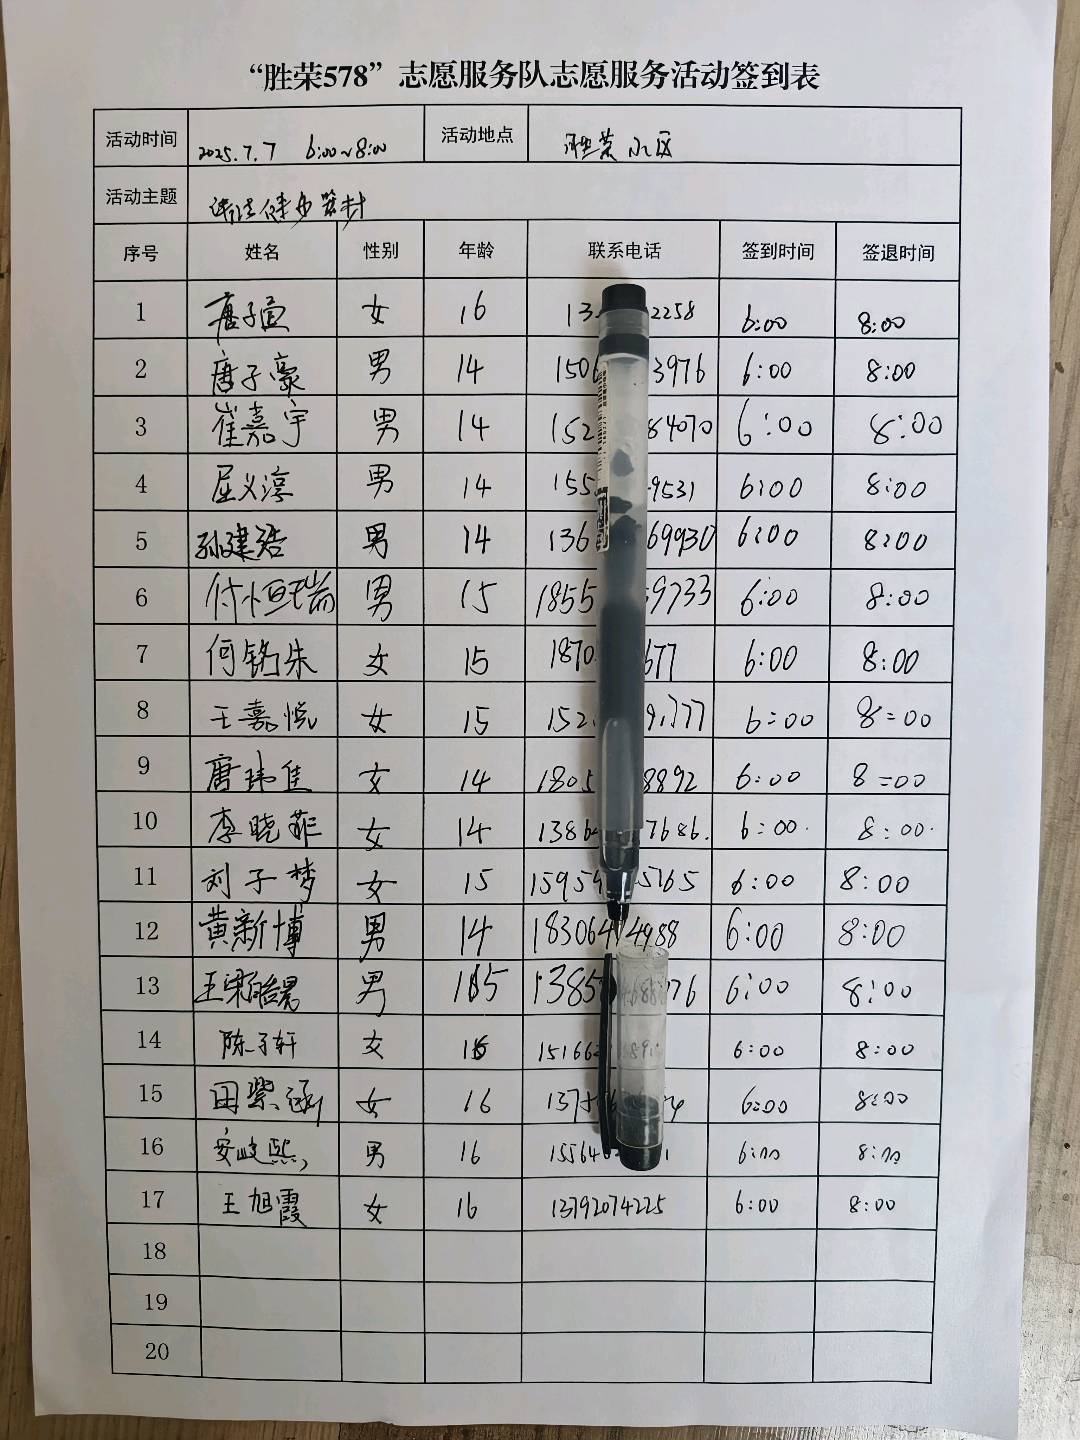 “胜荣578”志愿服务队志愿服务活动签到表
活动时间 2025.7.7 6:00~8:00 活动地点 胜荣小区
活动主题
序号 姓名 性别 年龄 联系电话 签到时间 签退时间
1 唐子 女 16 13 2258 6:00 8:00
2 唐子豪 男 14 150 3976 6:00 8:00
3 崔嘉宇 男 14 152 84070 6:00 8:00
4 屈义淳 男 14 155 9531 6:00 8:00
5 孙建浩 男 14 136 69930 6:00 8:00
6 付恒瑞 男 15 1855 9733 6:00 8:00
7 何铭朱 女 15 1870 677 6:00 8:00
8 王嘉悦 女 15 152 777 6:00 8:00
9 唐玮佳 女 14 1805 8892 6:00 8=00
10 李晓菲 女 14 1386 7686. 6:00. 8:00.
11 刘子梦 女 15 1595 5765 6:00 8:00
12 黄新博 男 14 183064 4988 6:00 8:00
13 王 男 15 1385 76 6:00 8:00
14 陈子轩 女 16 15166 6:00 8:00
15 田紫涵 女 16 137 6:00 8:00
16 安峻熙 男 16 15564 1 6:00 8:00
17 王旭霞 女 16 13792074225 6:00 8:00
18
19
20